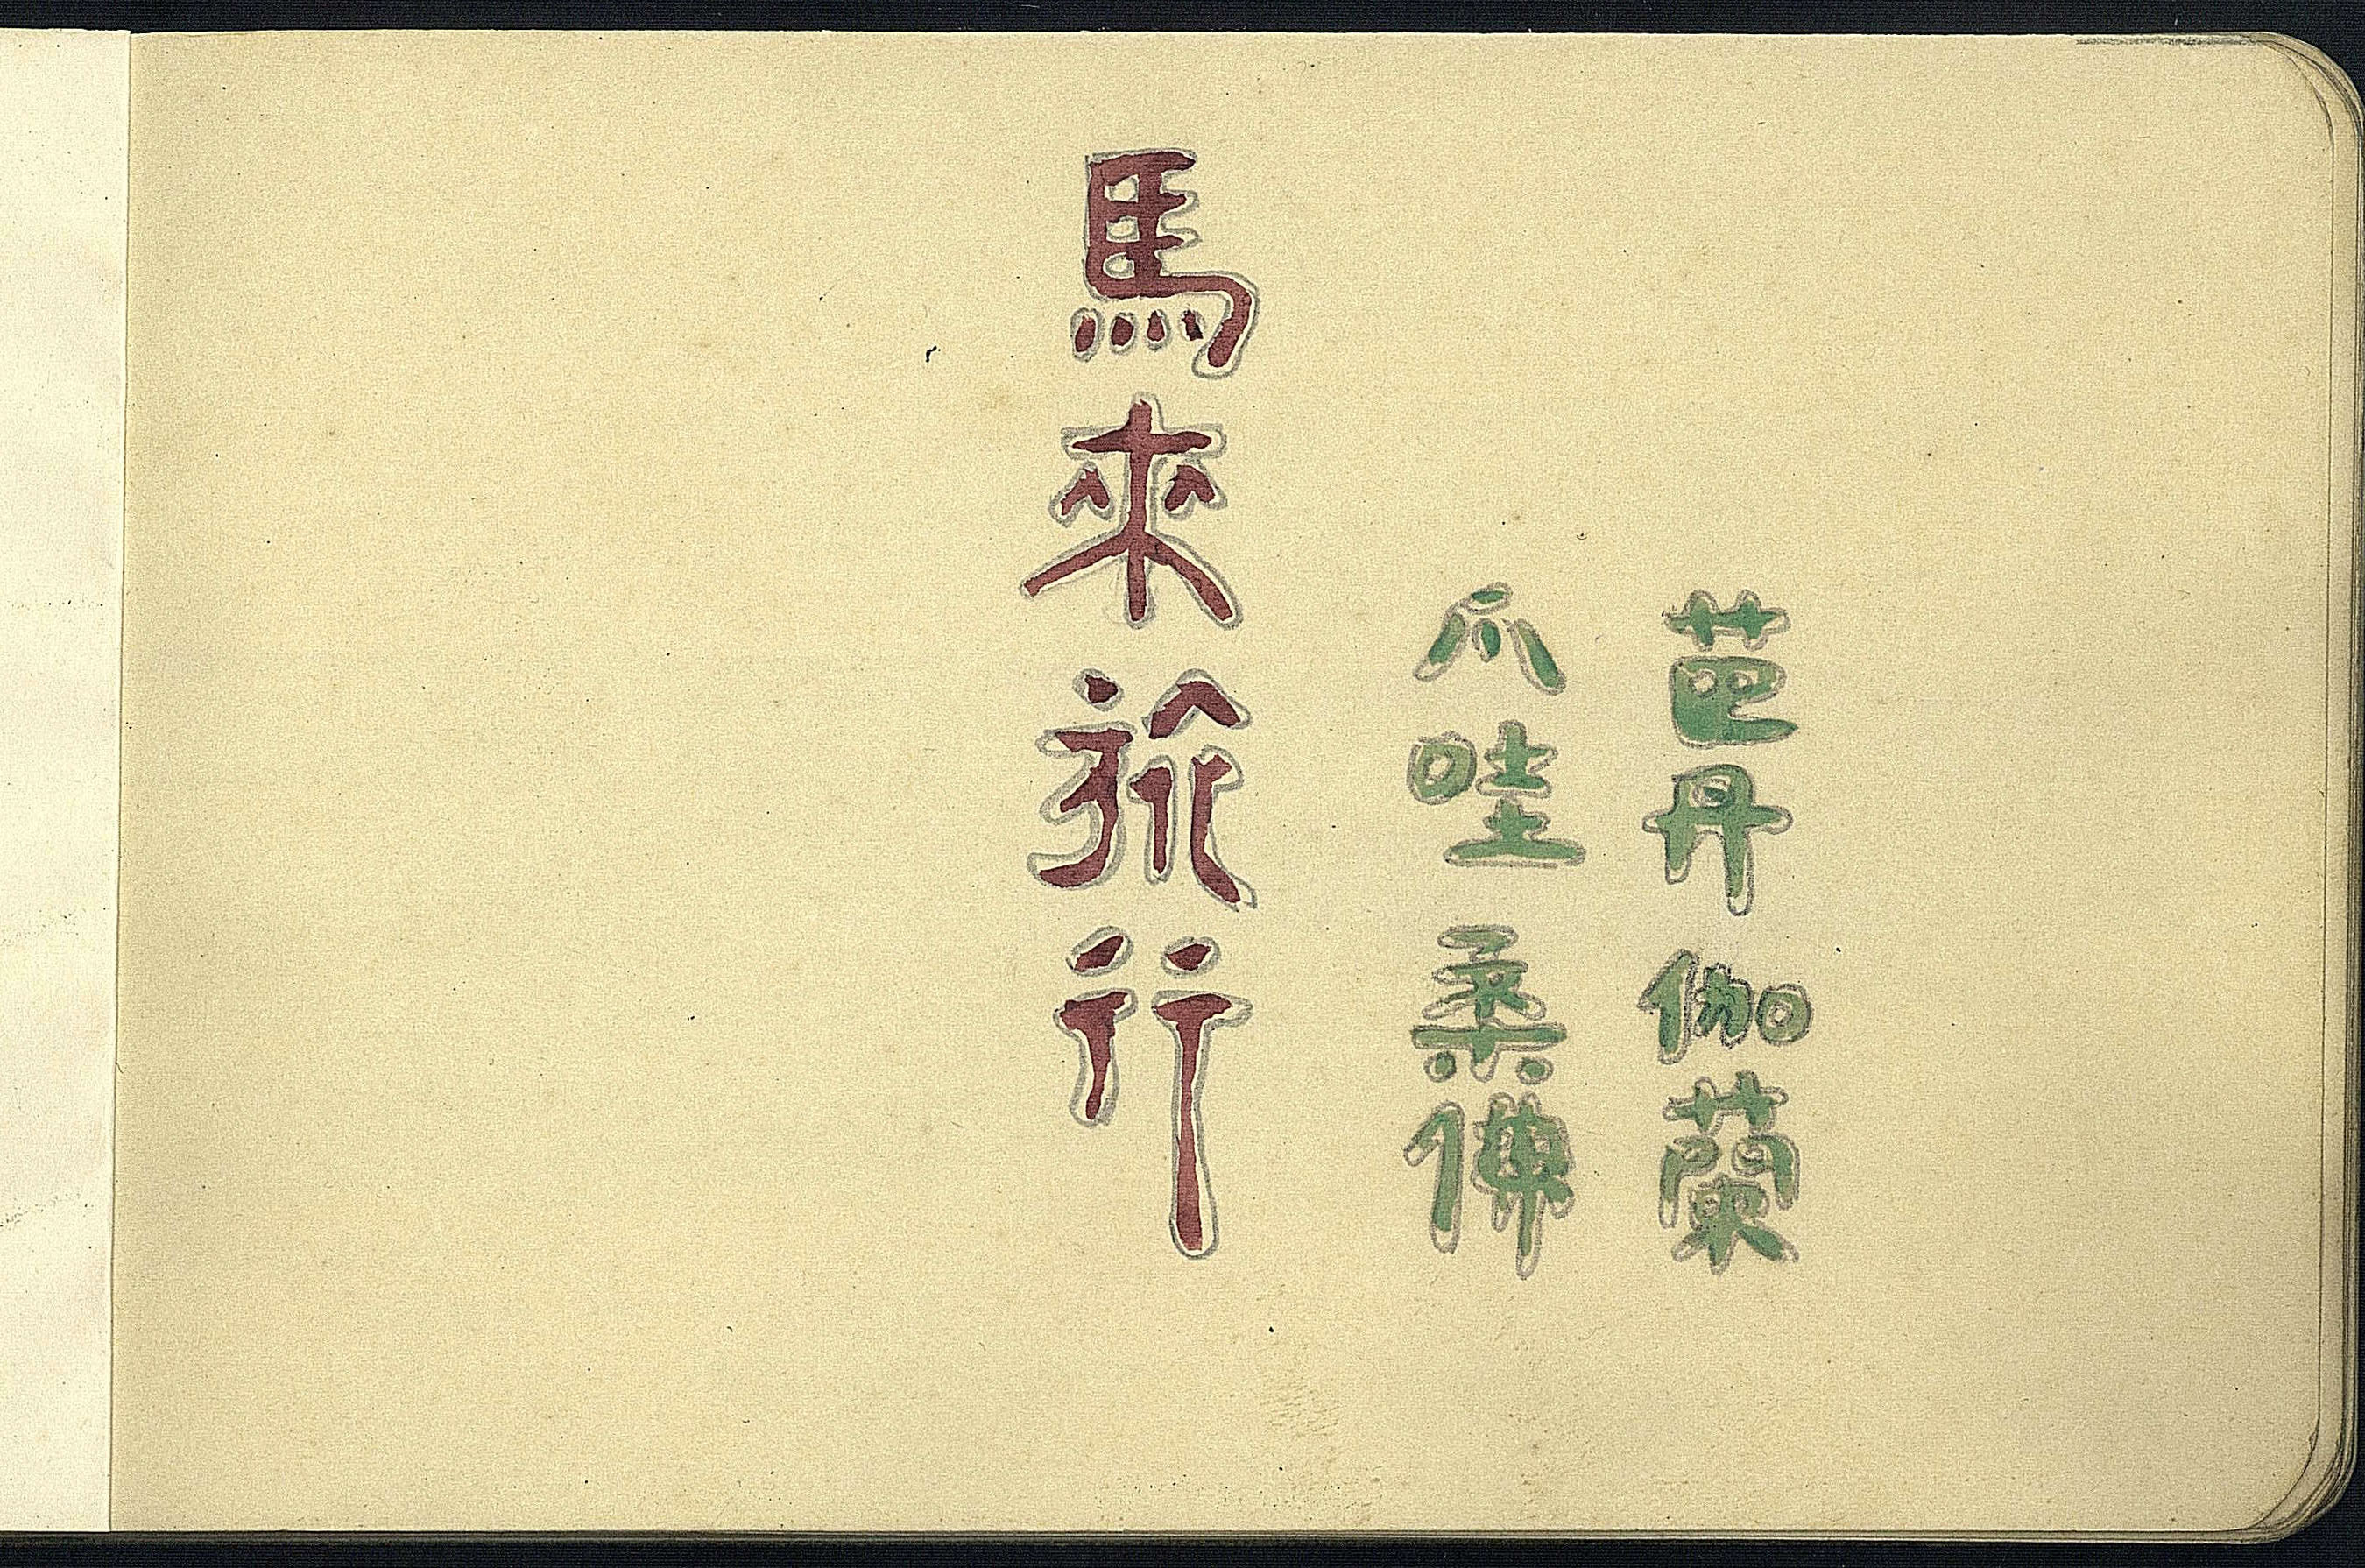 芭丹伽蘭
爪哇柔佛
馬來旅行